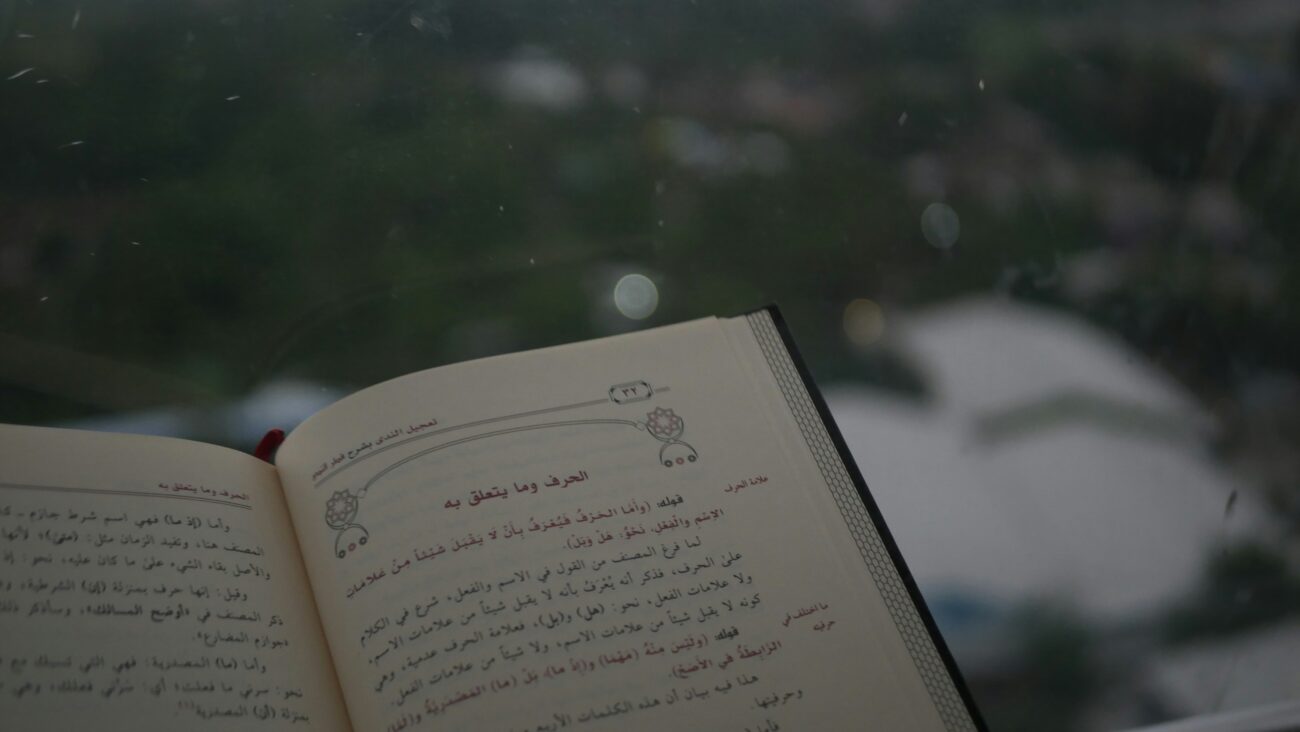 ٣٢
تعجيل الندى بشرح قطر الندى
الحرف وما يتعلق به
علامة الحرف
قوله: (وَأَمَّا الحَرْفُ فَيُعْرَفُ بِأَنْ لَا يَقْبَلَ شَيْئاً مِنْ عَلَامَاتِ
الِاسْمِ وَالْفِعْلِ، نَحْوُ: هَلْ وَبَلْ).
لما فرغ المصنف من القول في الاسم والفعل، شرع في الكلام
على الحرف، فذكر أنه يُعْرَفُ بأنه لا يقبل شيئاً من علامات الاسم،
ولا علامات الفعل، نحو: (هل) و(بل)، فعلامة الحرف عدمية، وهي
كونه لا يقبل شيئاً من علامات الاسم، ولا شيئاً من علامات الفعل.
ما اختلف في
حرفيته
قوله: (وَلَيْسَ مِنْهُ (مَهْمَا) و(إِذْ ما)، بَلْ (ما) المَصْدَرِيَّةُ و(لَمَّا)
الرَّابِطَةُ في الأَصَحِّ).
هذا فيه بيان أن هذه الكلمات الأربع
وحرفيتها.
الحرف وما يتعلق به
وأما (إذ ما) فهي اسم شرط جازم ـ
المصنف هنا، وتفيد الزمان مثل: (متى)؛ لأنها
والأصل بقاء الشيء على ما كان عليه، نحو: إذ
وقيل: إنها حرف بمنزلة (إن) الشرطية،
ذكر المصنف في «أوضح المسالك»، وسأذكر ذلك
«جوازم المضارع».
وأما (ما) المصدرية: فهي التي تسبك مع
نحو: سرني ما فعلت؛ أي: سرّني فعلك، وهي
بمنزلة (أن) المصدرية(١)